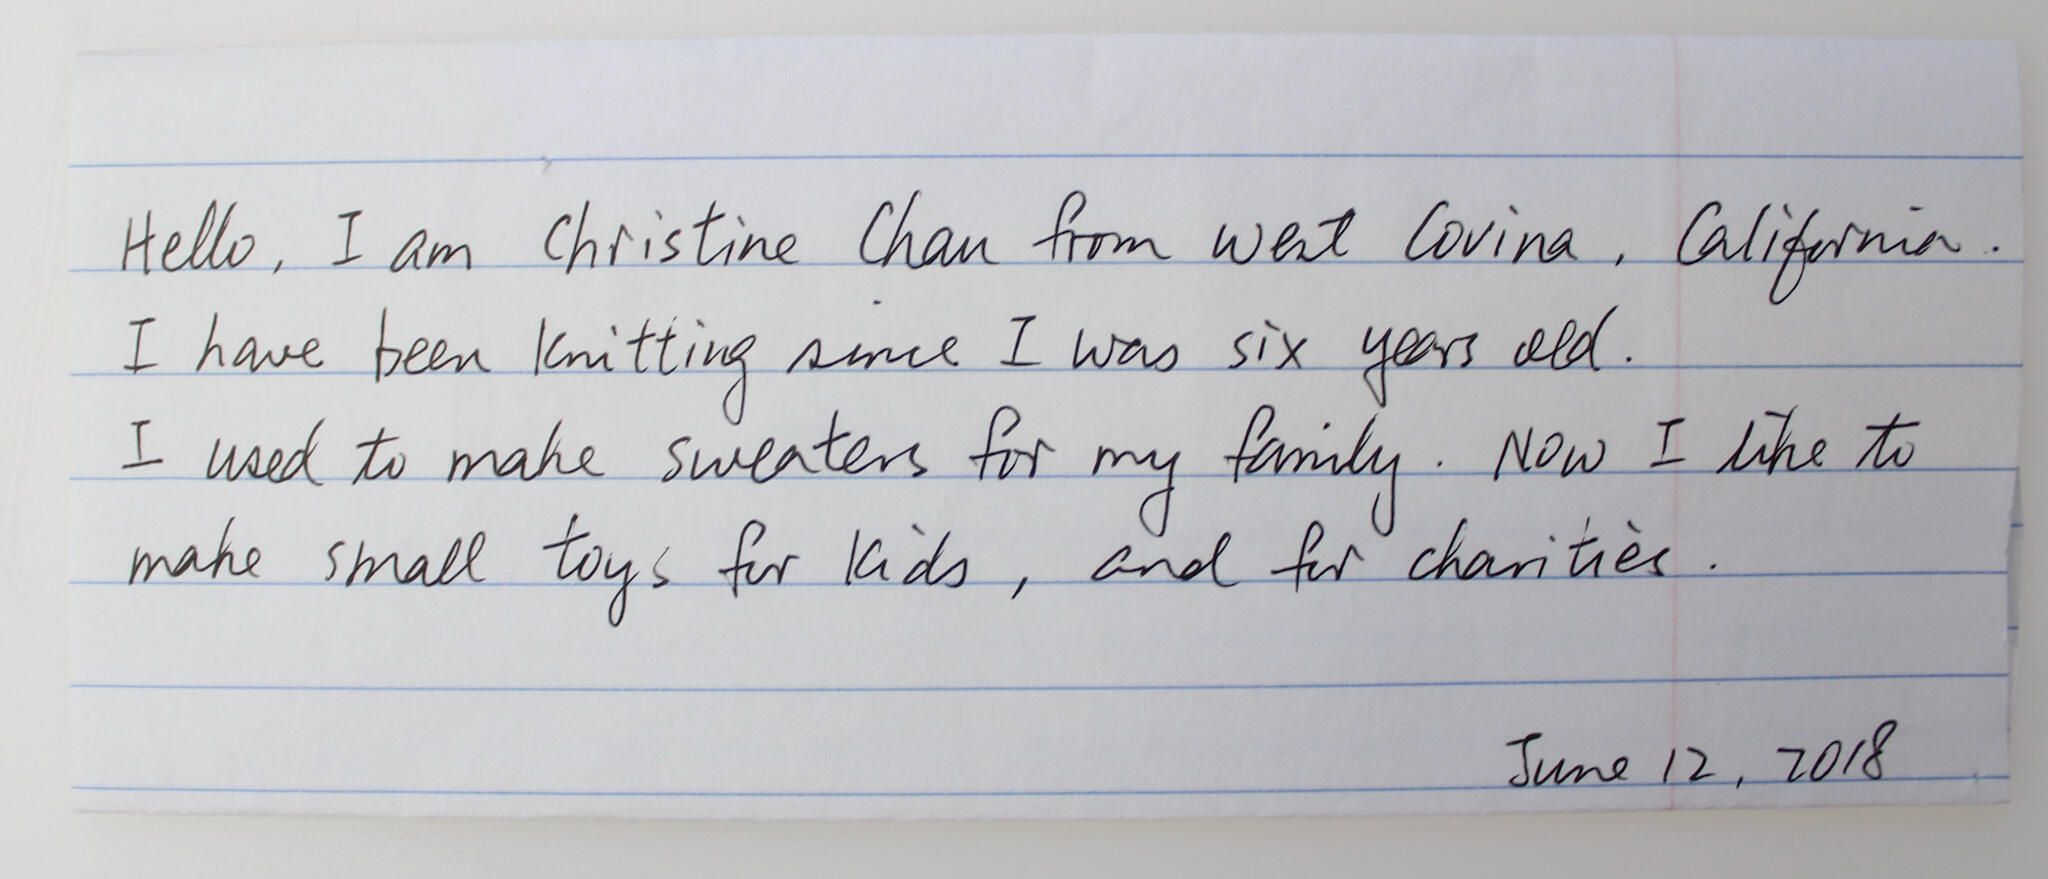 Hello, I am Christine Chan from West Covina, California.
I have been knitting since I was six years old.
I used to make sweaters for my family. Now I like to
make small toys for kids, and for charities.
June 12, 2018